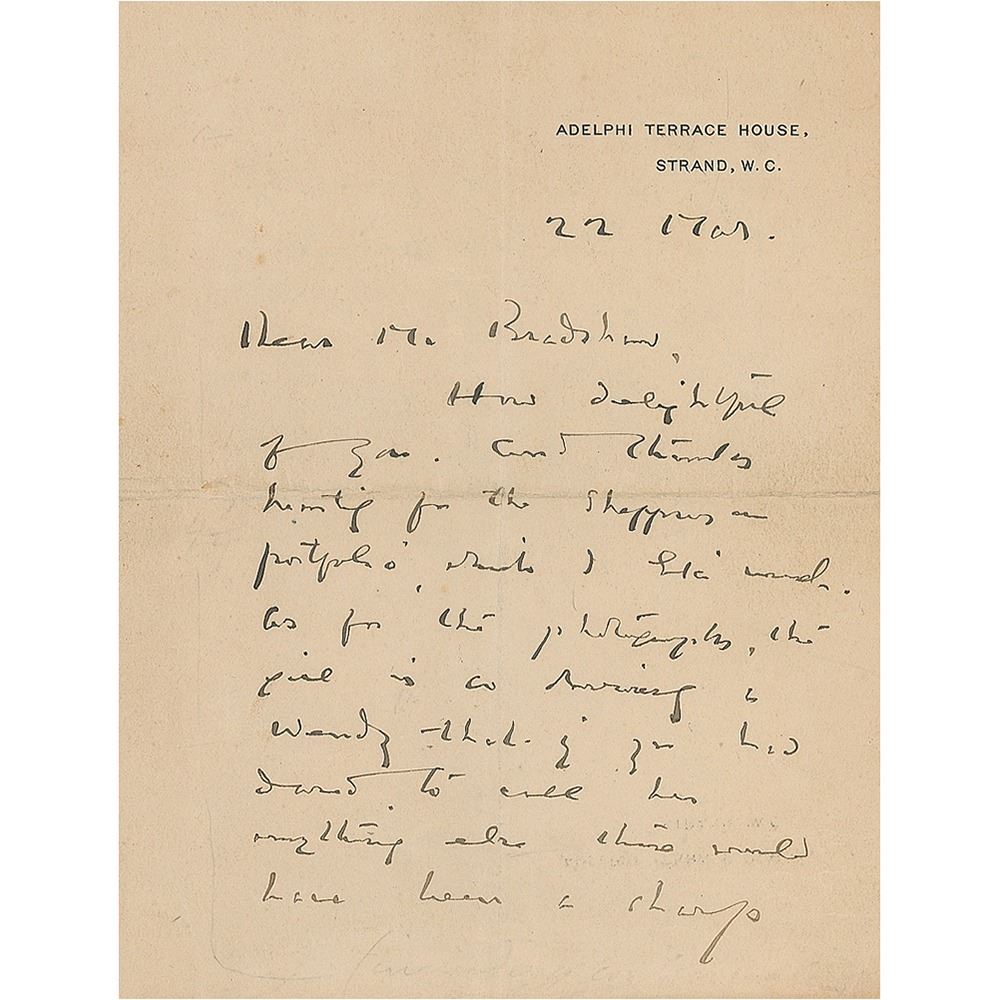 ADELPHI TERRACE HOUSE,
STRAND, W. C.
22 Mar.
Dear Mr Bradshaw,
How delightful
of you. And thanks
heartily for the
portfolio, which I like much.
As for the photographs, the
girl is so a
Wendy that if you had
dared to call her
anything else there would
have been a sharp